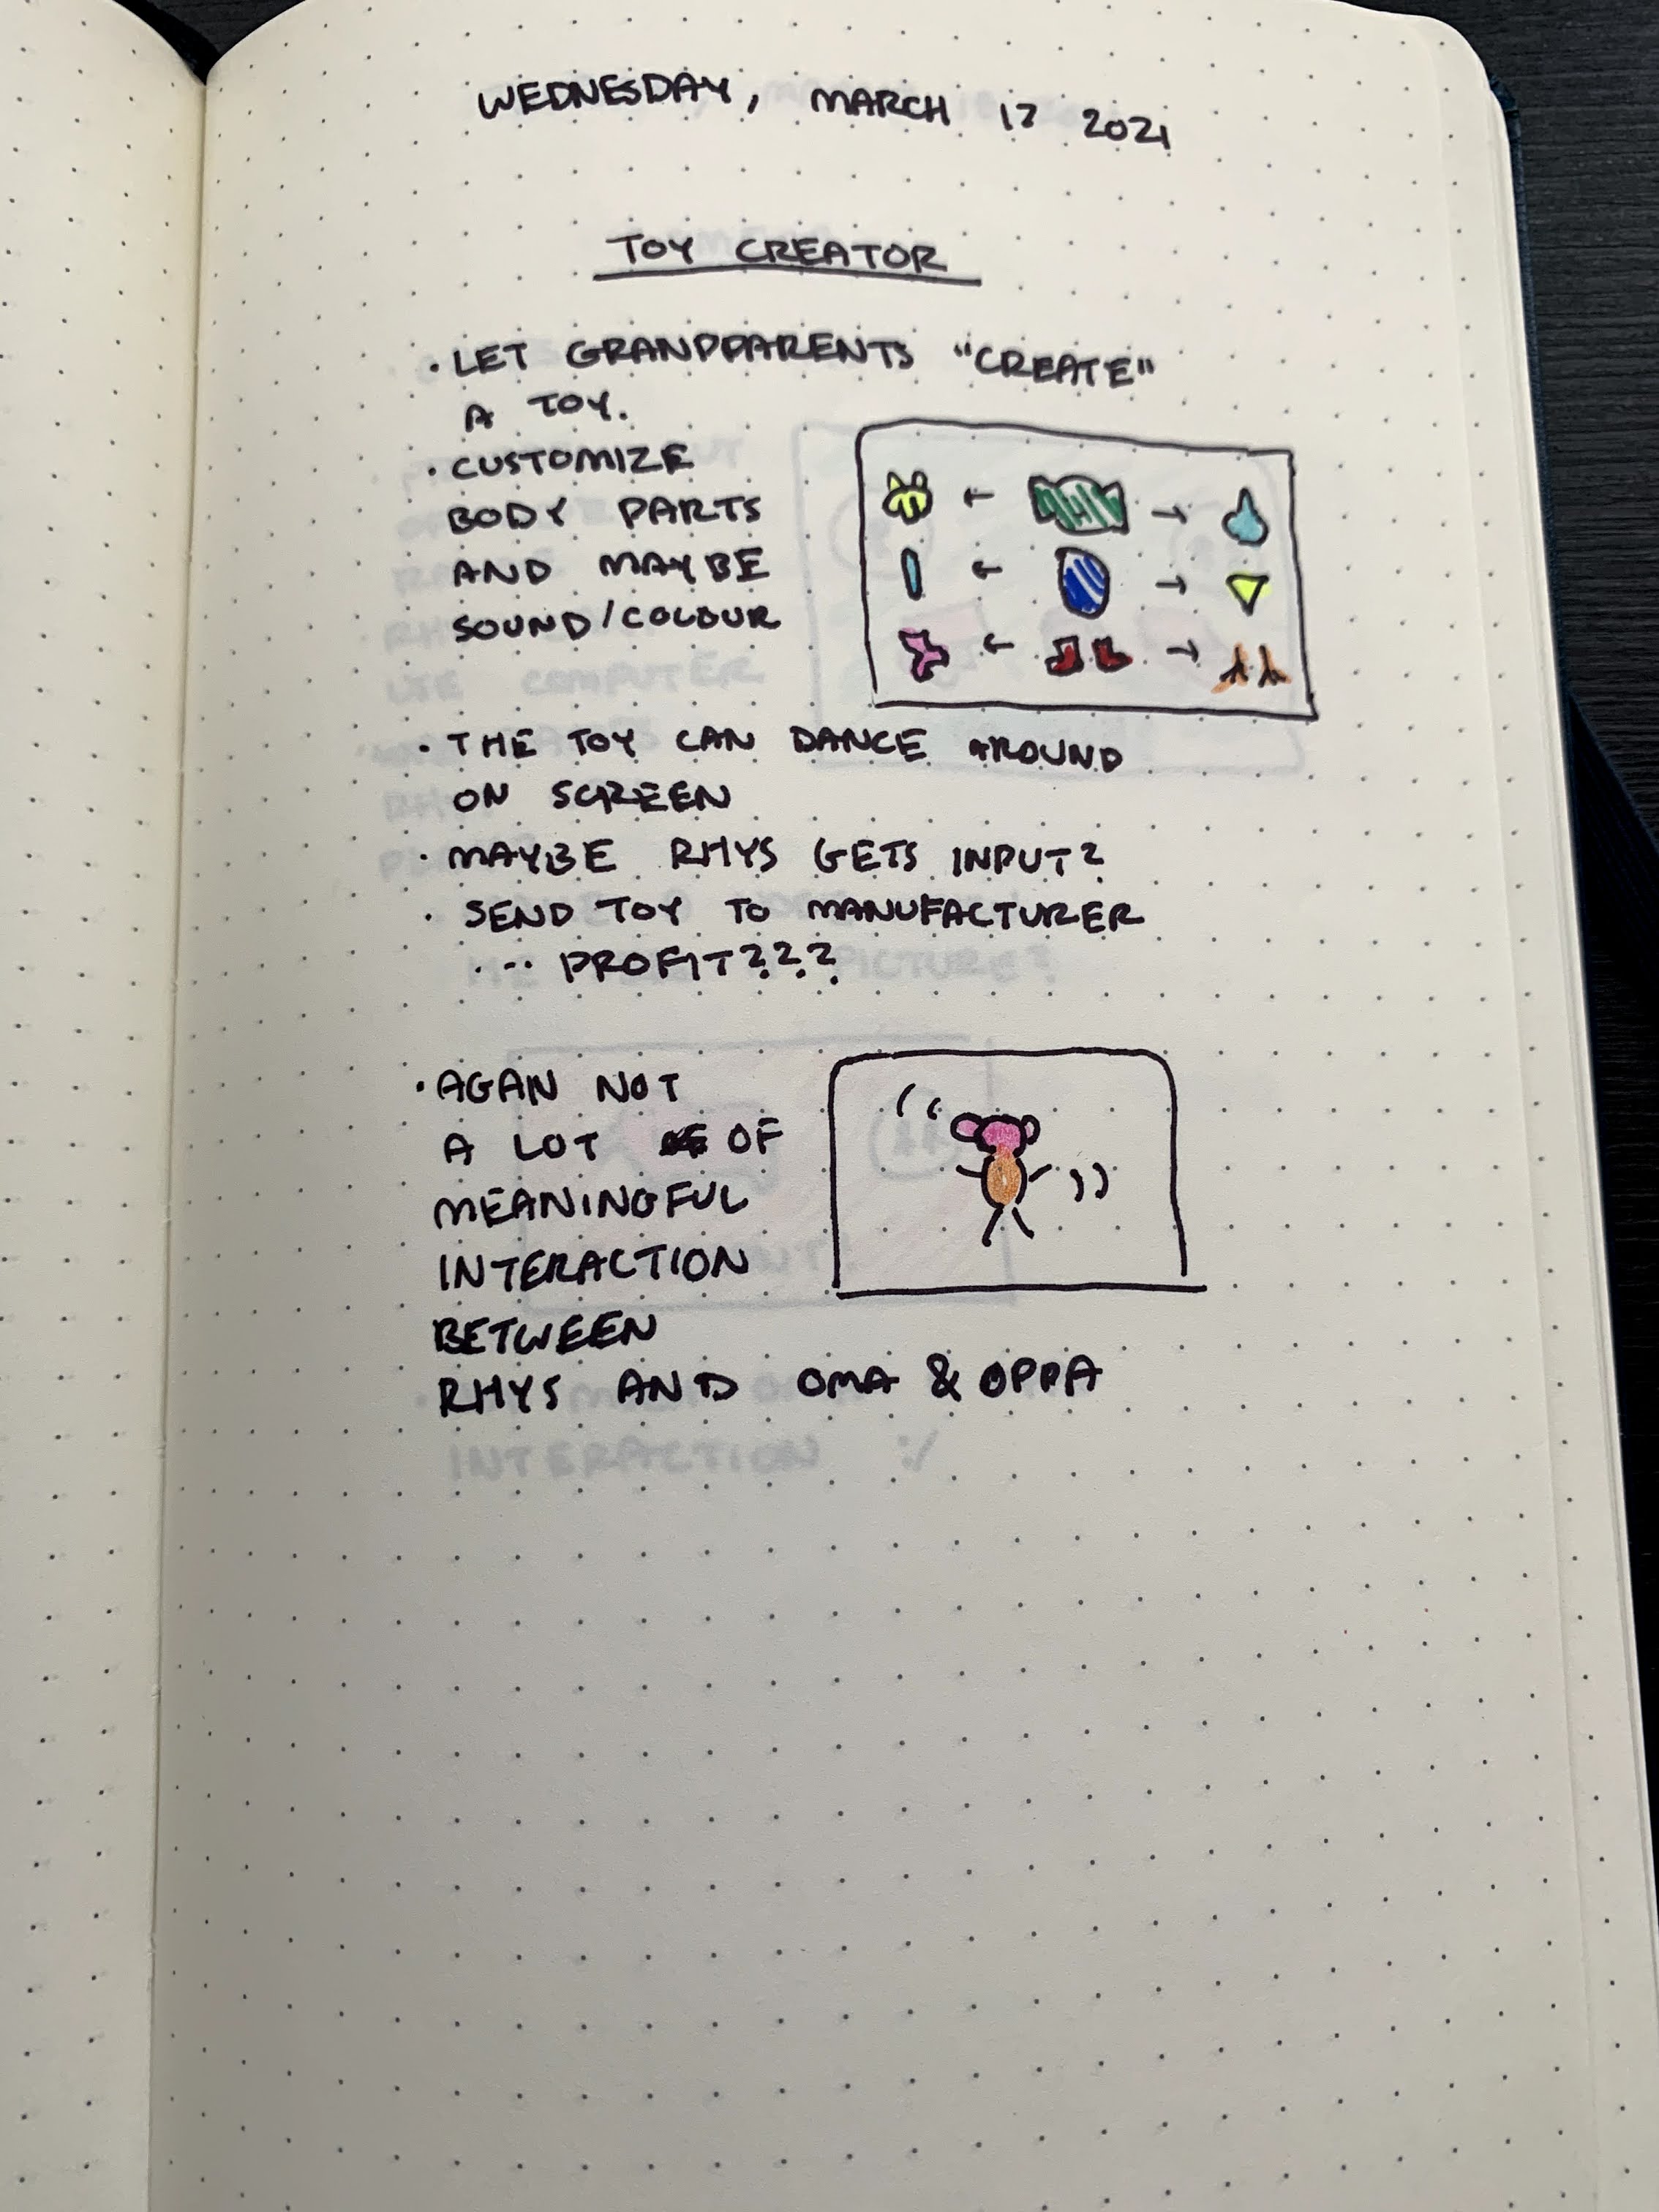 WEDNESDAY, MARCH 17 2021
TOY CREATOR
· LET GRANDPARENTS "CREATE"
A TOY.
· CUSTOMIZE
BODY PARTS
AND MAYBE
SOUND/COLOUR
· THE TOY CAN DANCE AROUND
ON SCREEN
· MAYBE RHYS GETS INPUT?
· SEND TOY TO MANUFACTURER
... PROFIT???
· AGAIN NOT
A LOT OF
MEANINGFUL
INTERACTION
BETWEEN
RHYS AND OMA & OPPA
INTERACTION :/